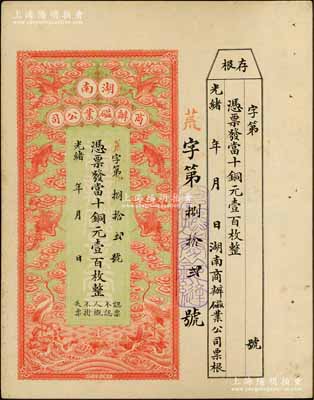 上海陽明拍賣
存根
字第 號
憑票發當十銅元壹百枚整
光緒 年 月 日湖南商辦磁業公司票根
字第捌拾弍號
湖南
商辦磁業公司
字第捌拾弍號
憑票發當十銅元壹百枚整
光緒 年 月 日
認票
不認
人概
不掛
失票
上海陽明拍賣